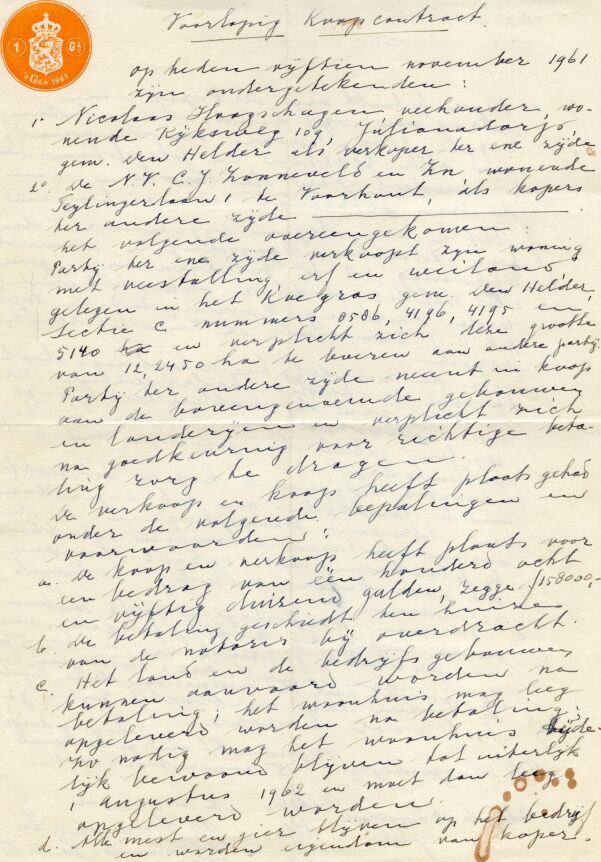 1 GL
's GR. 1961
Voorlopig Koopcontract.
op heden vijftien november 1961
zijn ondergetekenden:
1e Nicolaas Hoogschagen veehouder, wo-
nende Rijksweg 109, Julianadorp,
gem. Den Helder als verkoper ter ene zijde
2e. De N.V. C.J. Zonneveld en Zn, wonende
Teylingerlaan 1 te Voorhout, als kopers
ter andere zijde
het volgende overeengekomen:
Party ter ene zijde verkoopt zijn woning
met veestalling, erf en weiland
gelegen in het Koegras gem. Den Helder,
sectie C nummers 8586, 4196, 4195 en
5140 en verplicht zich deze grootte
van 12,2450 ha te leveren aan andere party.
Party ter andere zijde neemt in koop
aan de bovengenoemde gebouwen
en landerijen en verplicht zich
na goedkeuring voor richtige beta-
ling zorg te dragen.
De verkoop en koop heeft plaats gehad
onder de volgende bepalingen en
voorwaarden:
a. De koop en verkoop heeft plaats voor
een bedrag van één honderd acht
en vijftig duizend gulden, zegge f158000,-
b. De betaling geschiedt ten huize
van de notaris bij overdracht.
c. Het land en de bedrijfsgebouwen
kunnen aanvaard worden na
betaling; het woonhuis mag leeg
opgeleverd worden na betaling.
Zo nodig mag het woonhuis tijde-
lijk bewoond blijven tot uiterlijk
1 augustus 1962 en moet dan leeg
opgeleverd worden.
d. Alle mest en gier blijven op het bedrijf
en worden eigendom van koper.